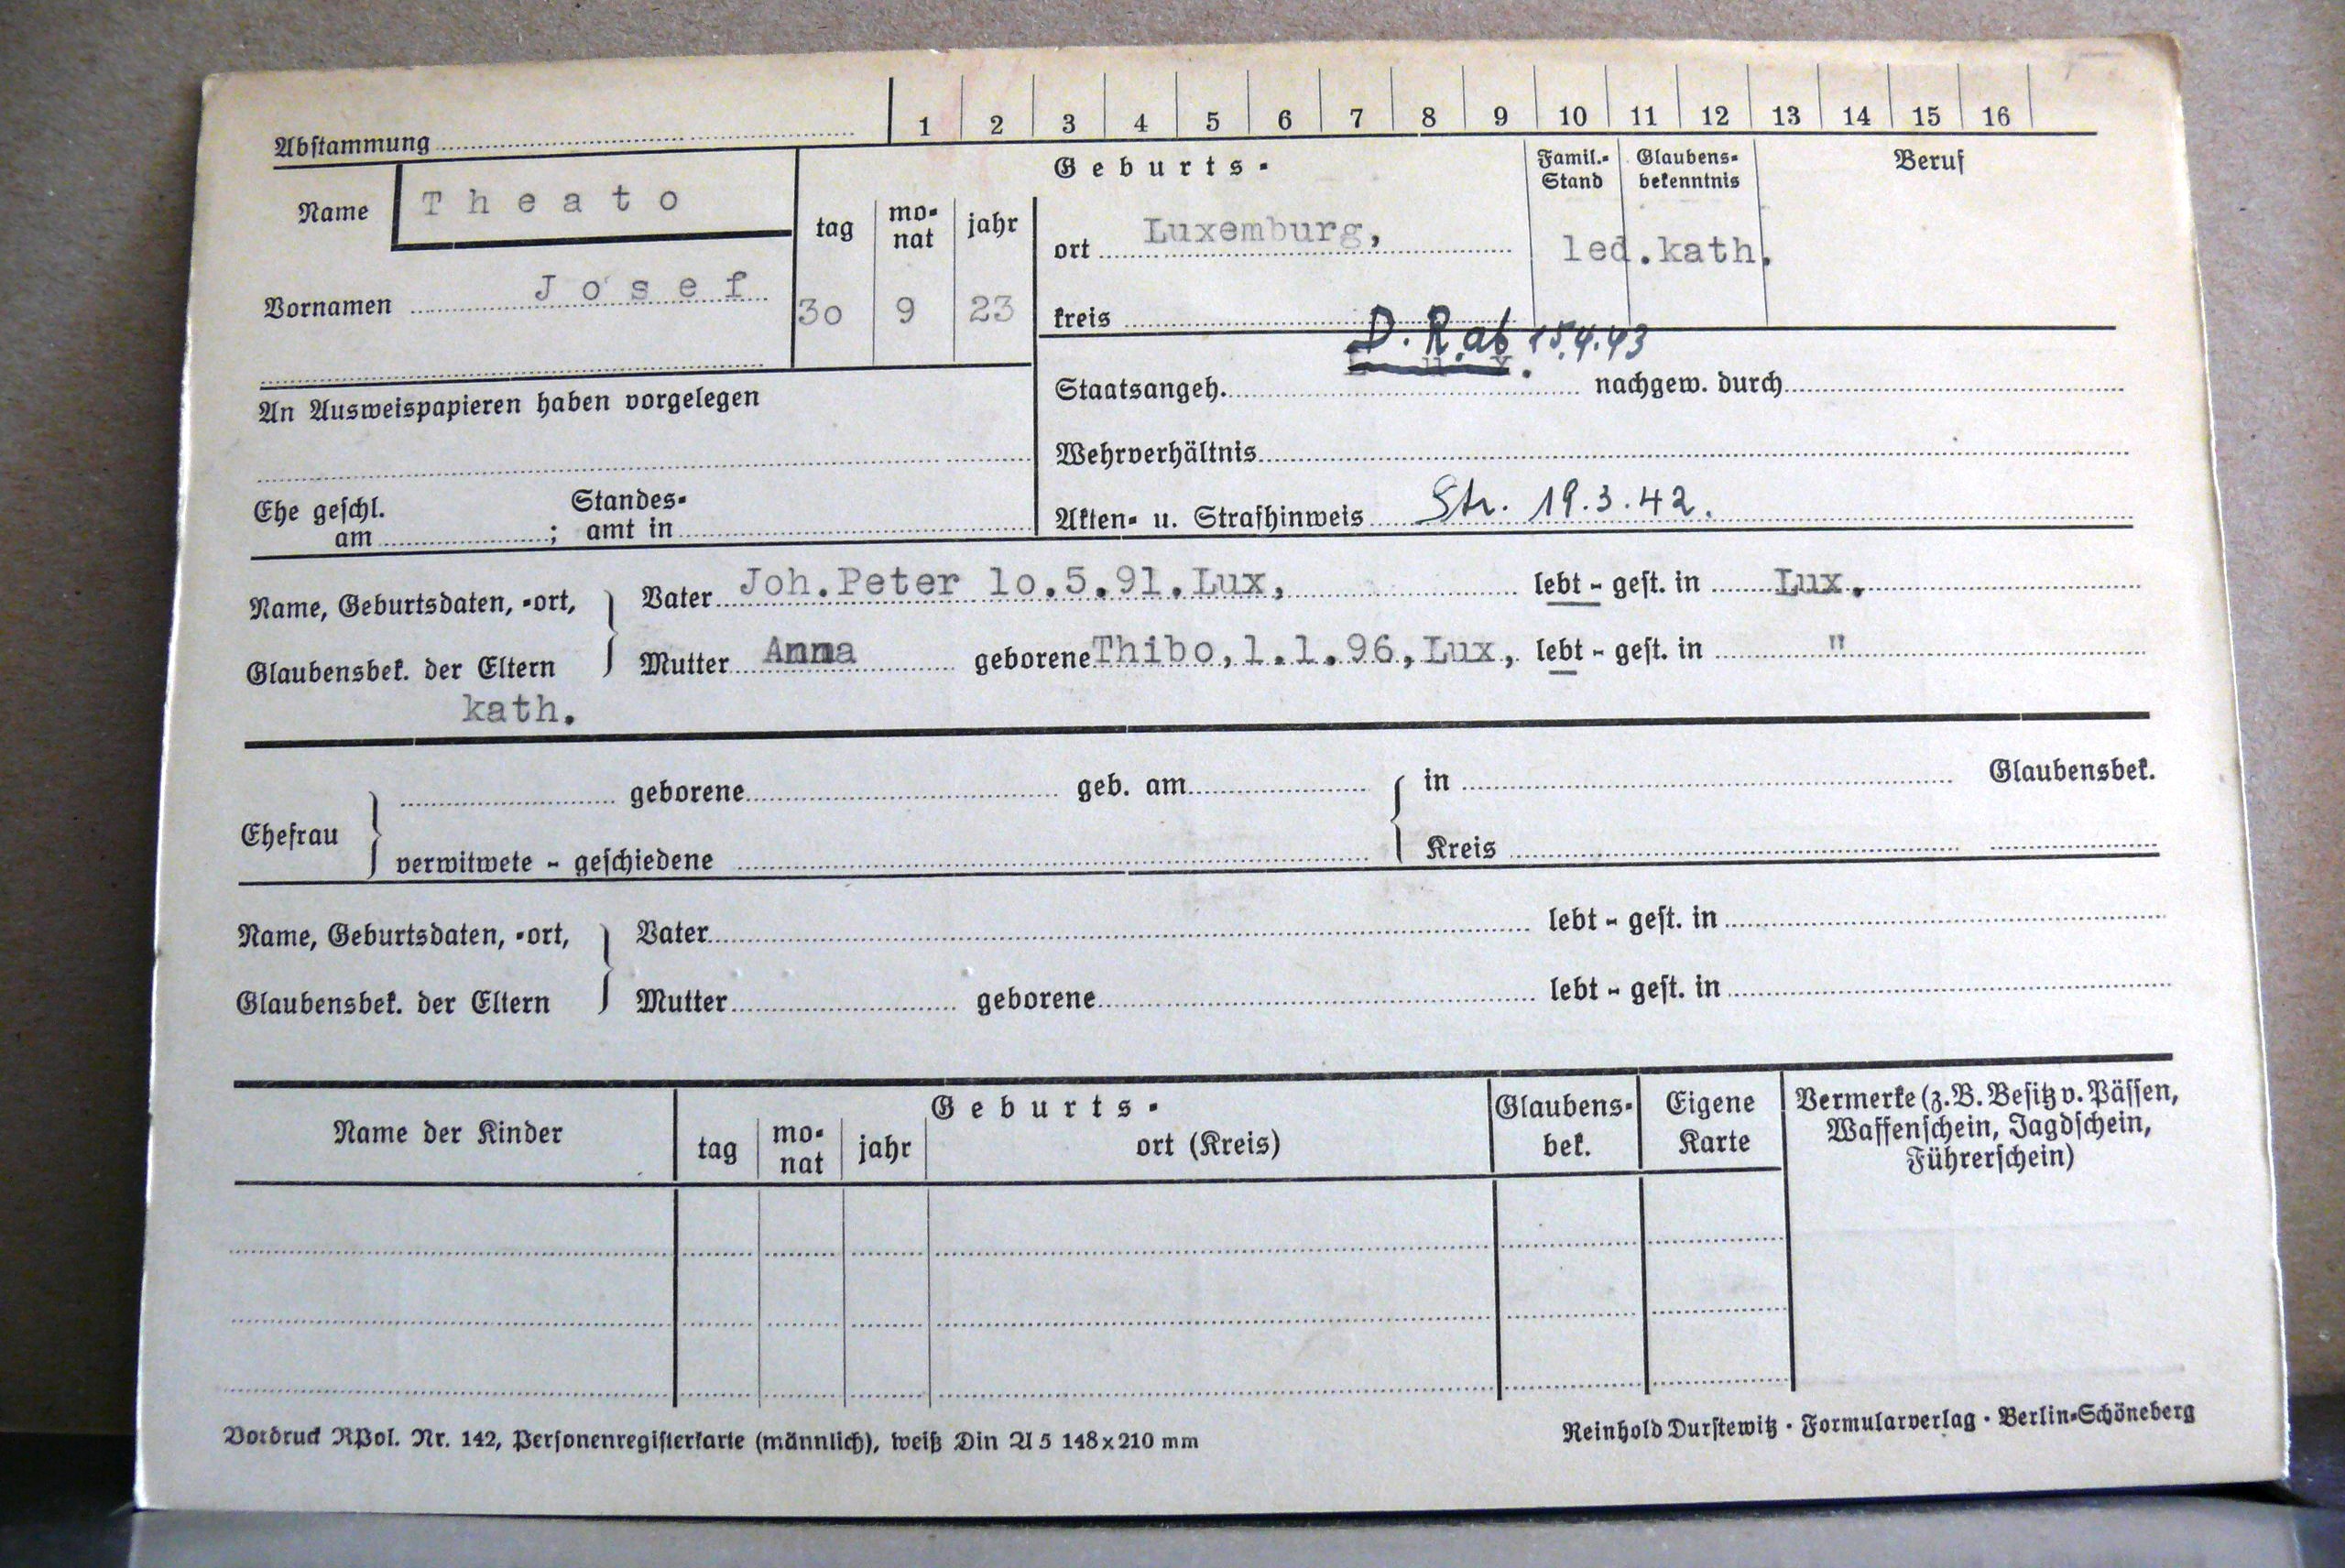 Abstammung 1 2 3 4 5 6 7 8 9 10 11 12 13 14 15 16
Name Theato
Vornamen Josef
Geburts-
tag monat jahr
30 9 23
ort Luxemburg,
kreis
Famil.-Stand
led.
Glaubensbekenntnis
kath.
Beruf
An Ausweispapieren haben vorgelegen
D. R. ab 15.4.43
Staatsangeh. Lux. nachgew. durch
Wehrverhältnis
Ehe geschl. am ; Standesamt in
Akten- u. Strafhinweis Str. 19.3.42.
Name, Geburtsdaten, -ort, Vater Joh.Peter lo.5.91.Lux, lebt - gest. in Lux.
Glaubensbek. der Eltern Mutter Anna geborene Thibo,l.l.96,Lux, lebt - gest. in "
kath.
Ehefrau geborene geb. am in Glaubensbek.
verwitwete - geschiedene Kreis
Name, Geburtsdaten, -ort, Vater lebt - gest. in
Glaubensbek. der Eltern Mutter geborene lebt - gest. in
Name der Kinder
Geburts-
tag monat jahr ort (Kreis)
Glaubensbek.
Eigene Karte
Vermerke (z.B. Besitz v. Pässen,
Waffenschein, Jagdschein,
Führerschein)
Vordruck RPol. Nr. 142, Personenregisterkarte (männlich), weiß Din A 5 148x210 mm
Reinhold Durstewitz · Formularverlag · Berlin-Schöneberg